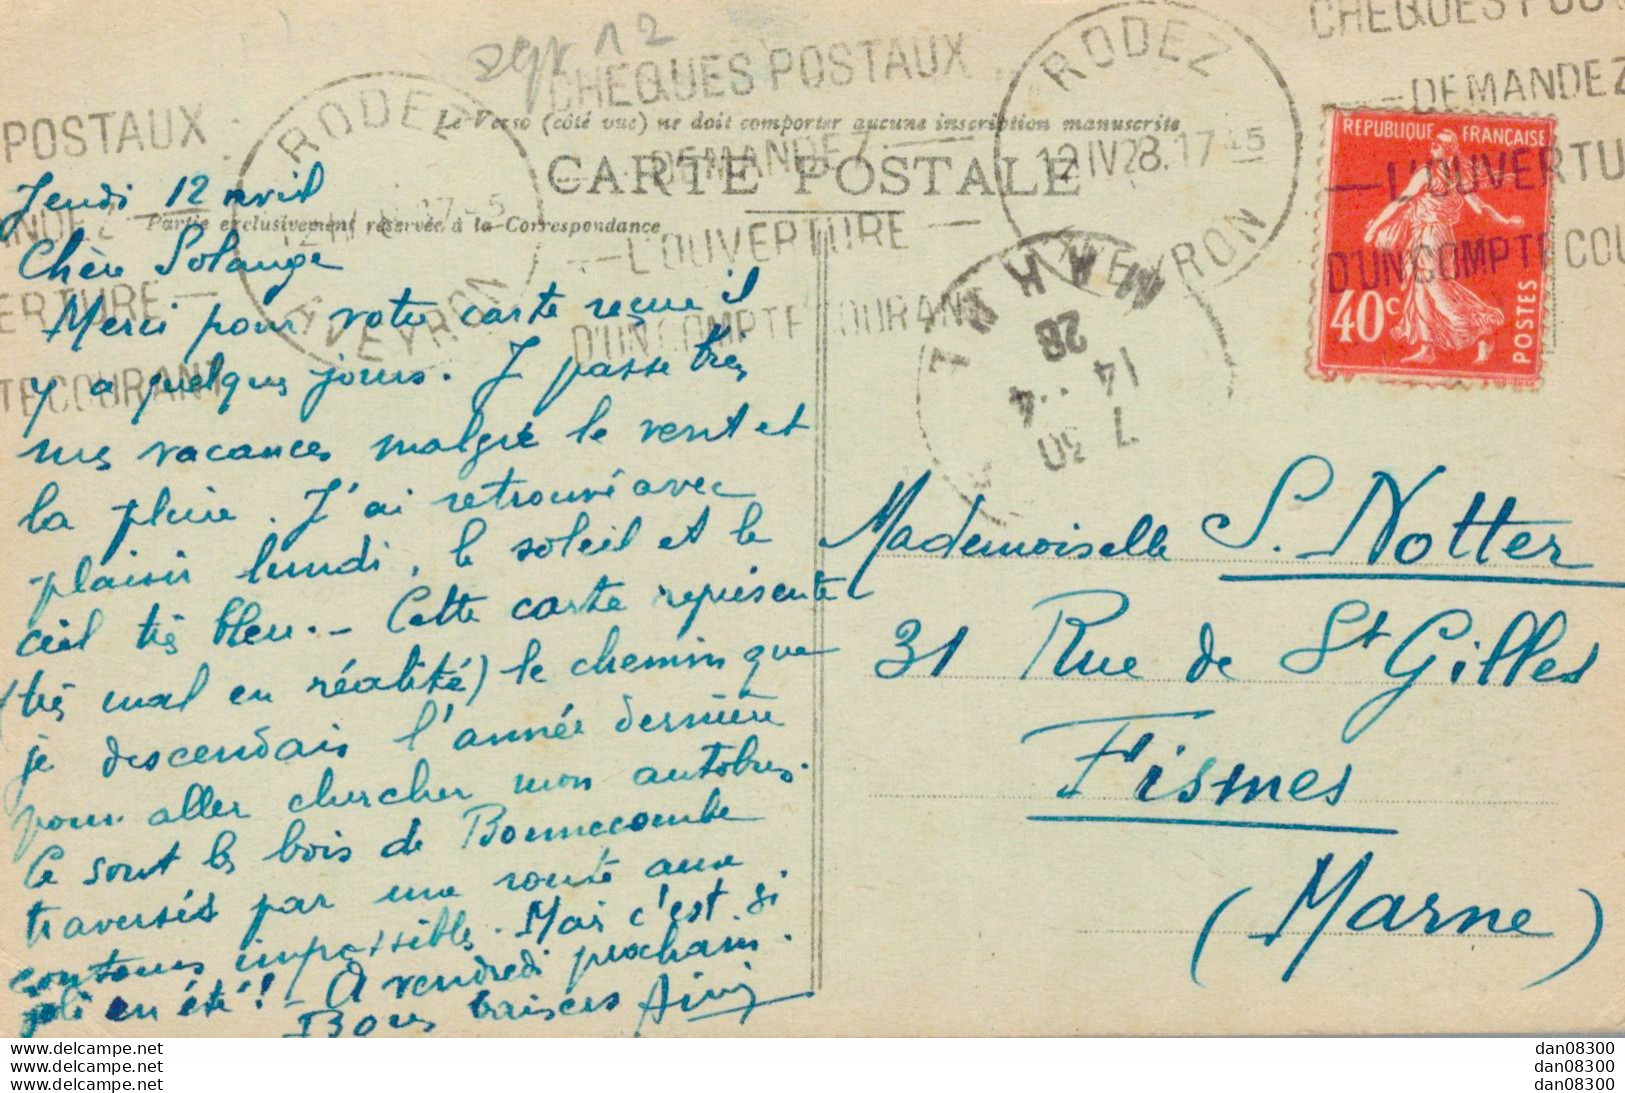 sept 12
CHEQUES POSTAUX
DEMANDEZ
L'OUVERTURE
D'UN COMPTE COURANT
POSTAUX
ERTURE
TE COURANT
RODEZ
AVEYRON
RODEZ
12 IV 28. 17-45
AVEYRON
CHEQUES POST
DEMANDEZ
L'OUVERTU
D'UN COMPTE COU
Le Verso (côté vue) ne doit comporter aucune inscription manuscrite
CARTE POSTALE
Partie exclusivement réservée à la Correspondance
REPUBLIQUE FRANÇAISE
40c
POSTES
7 30
14 - 4
28
MARNE
Jeudi 12 avril
Chère Solange
Merci pour votre carte reçue il
y a quelques jours. Je passe très
mes vacances malgré le vent et
la pluie. J'ai retrouvé avec
plaisir lundi, le soleil et le
ciel très bleu. - Cette carte représente
(très mal en réalité) le chemin que
je descendais l'année dernière
pour aller chercher mon autobus.
Ce sont les bois de Bonnecombe
traversés par une route aux
contours impossibles. Mais c'est si
joli en été! - À vendredi prochain.
Bons baisers
Mademoiselle S. Notter
31 Rue de St Gilles
Fismes
(Marne)
www.delcampe.net
www.delcampe.net
www.delcampe.net
dan08300
dan08300
dan08300